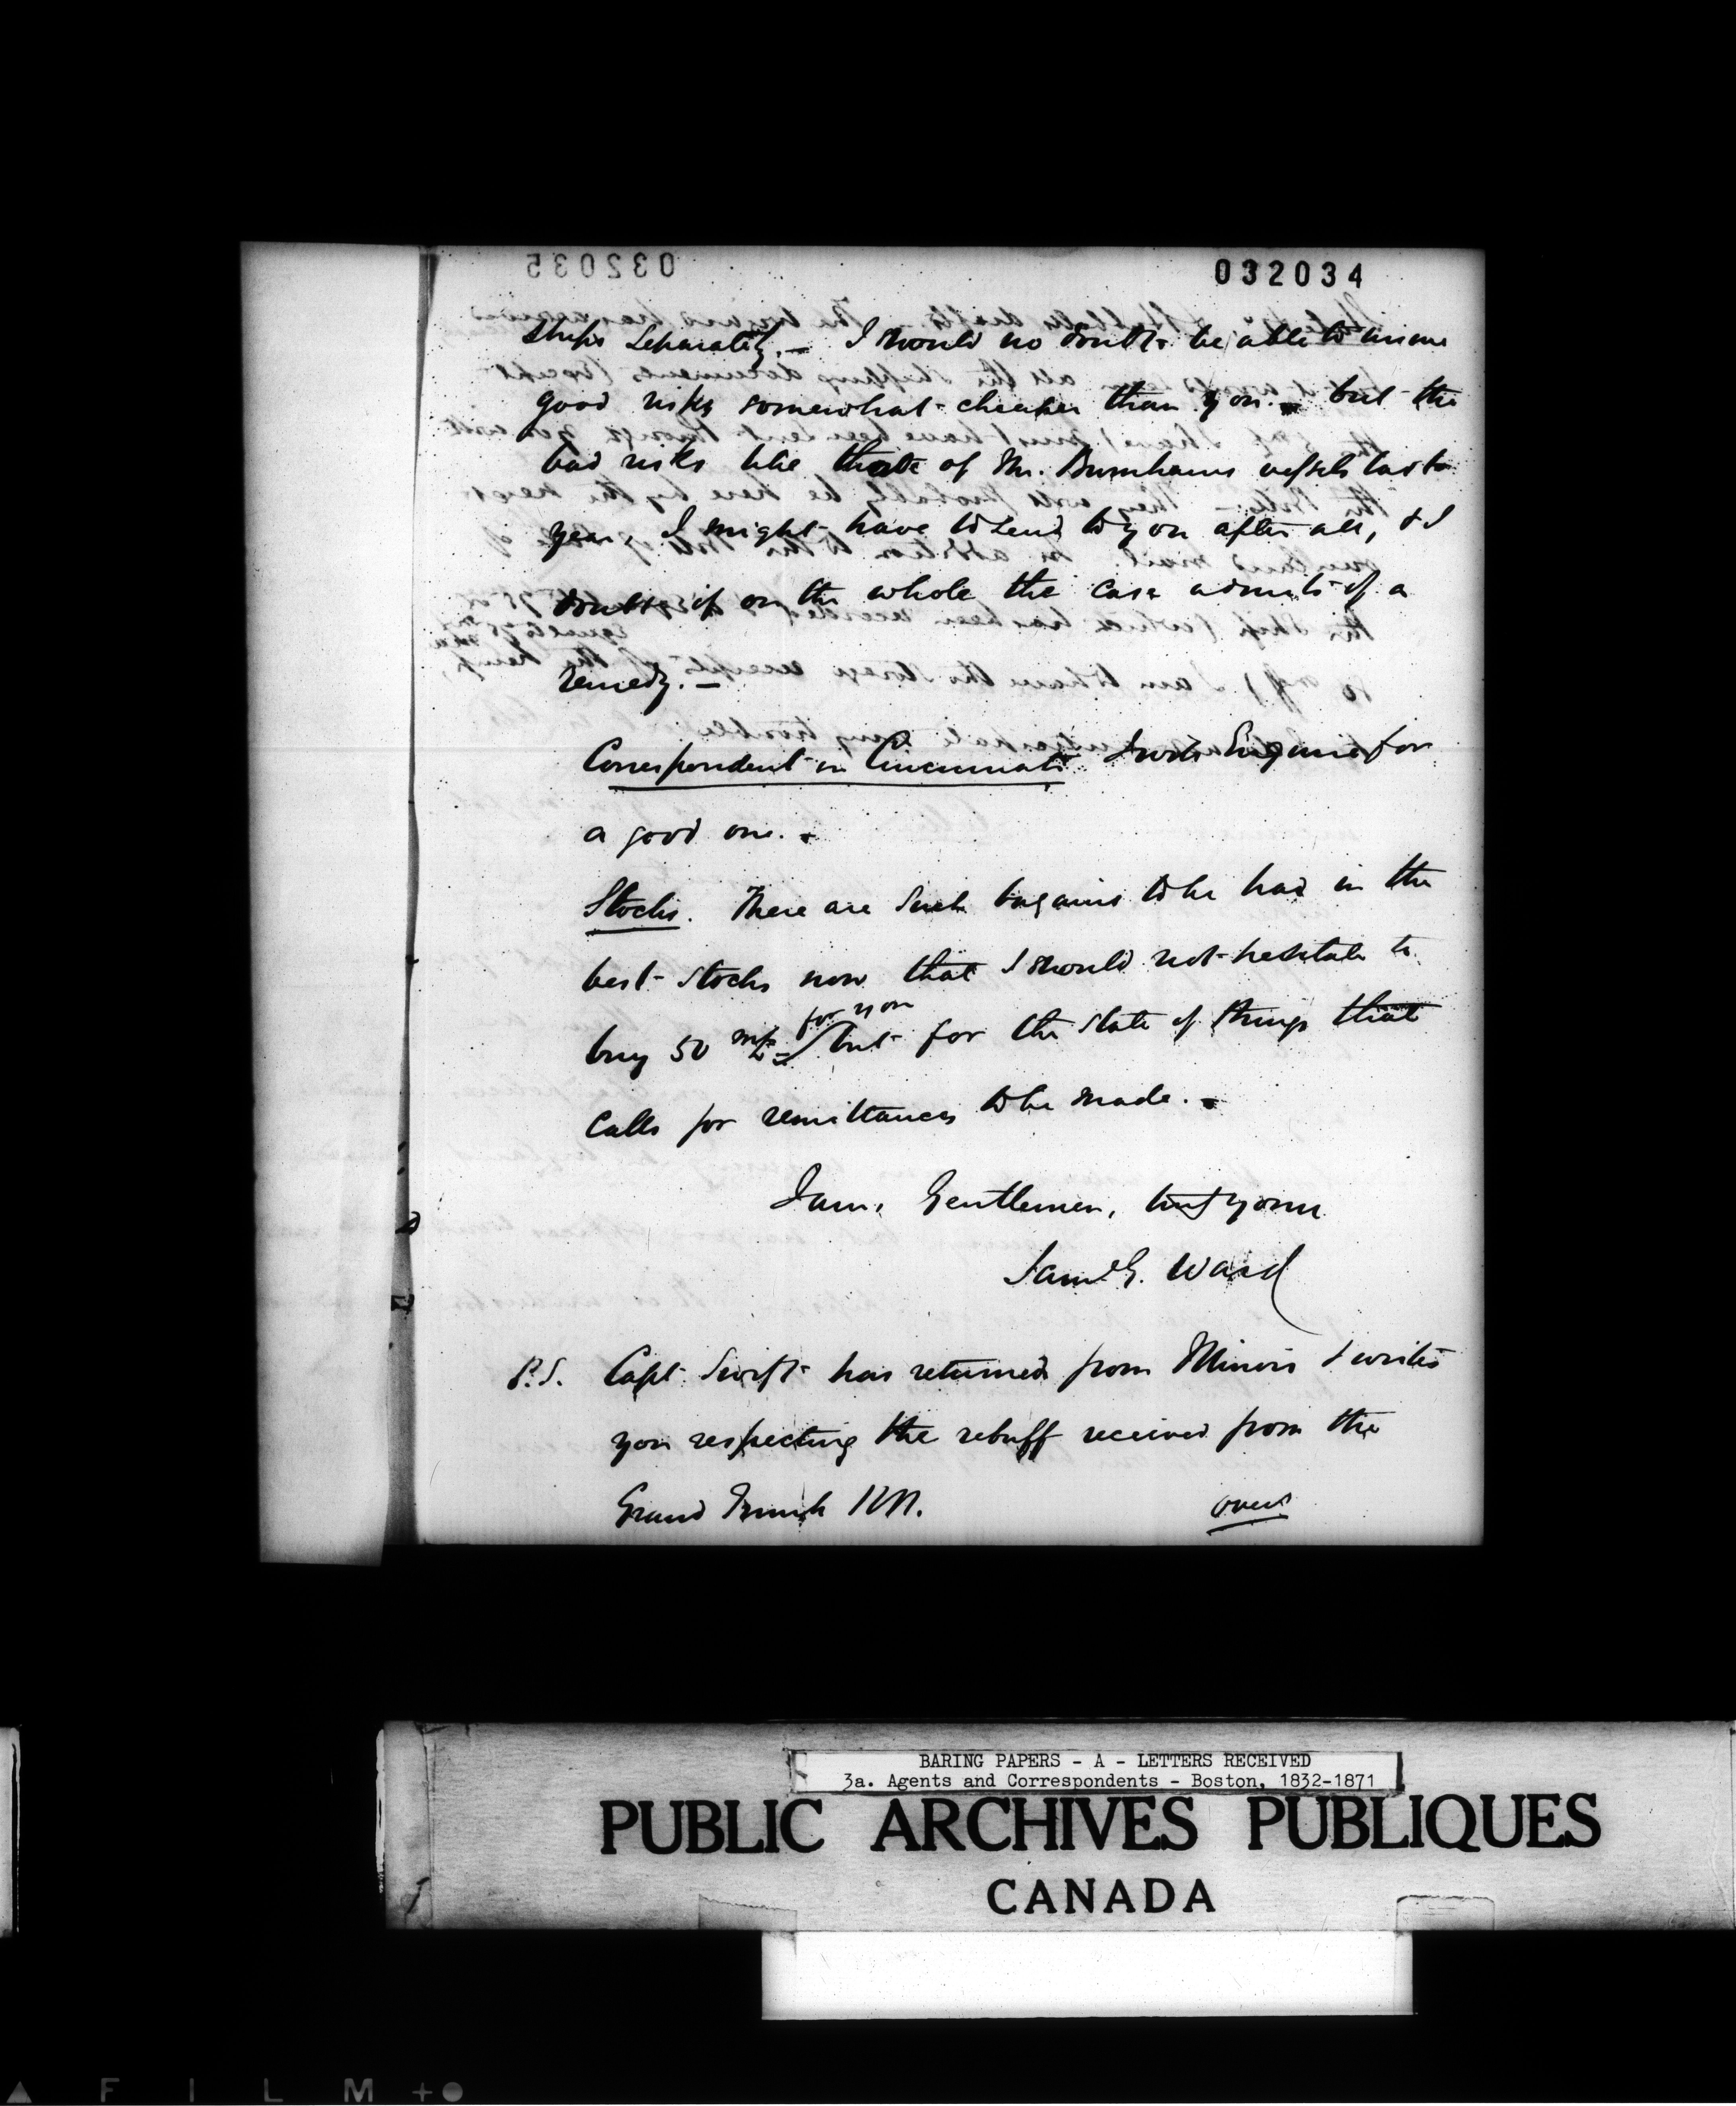 032034
ships separately. — I should no doubt be able to insure
good risks somewhat cheaper than you. — but the
bad risks like those of Mr. Burnhams vessels last
year, I might have to send to you after all, & I
doubt if on the whole the case admits of a
remedy. —
Correspondent in Cincinnati I will Enquire for
a good one. —
Stocks. There are such bargains to be had in the
best stocks now that I should not hesitate to
for you
buy 50 but for the state of things that
calls for remittances to be made. —
I am, Gentlemen, truly yours
Saml G. Ward
P.S. Capt Swift has returned from Illinois & writes
you respecting the rebuff received from the
Grand Trunk RR.
over
BARING PAPERS - A - LETTERS RECEIVED
3a. Agents and Correspondents - Boston, 1832-1871
PUBLIC ARCHIVES PUBLIQUES
CANADA
FILM